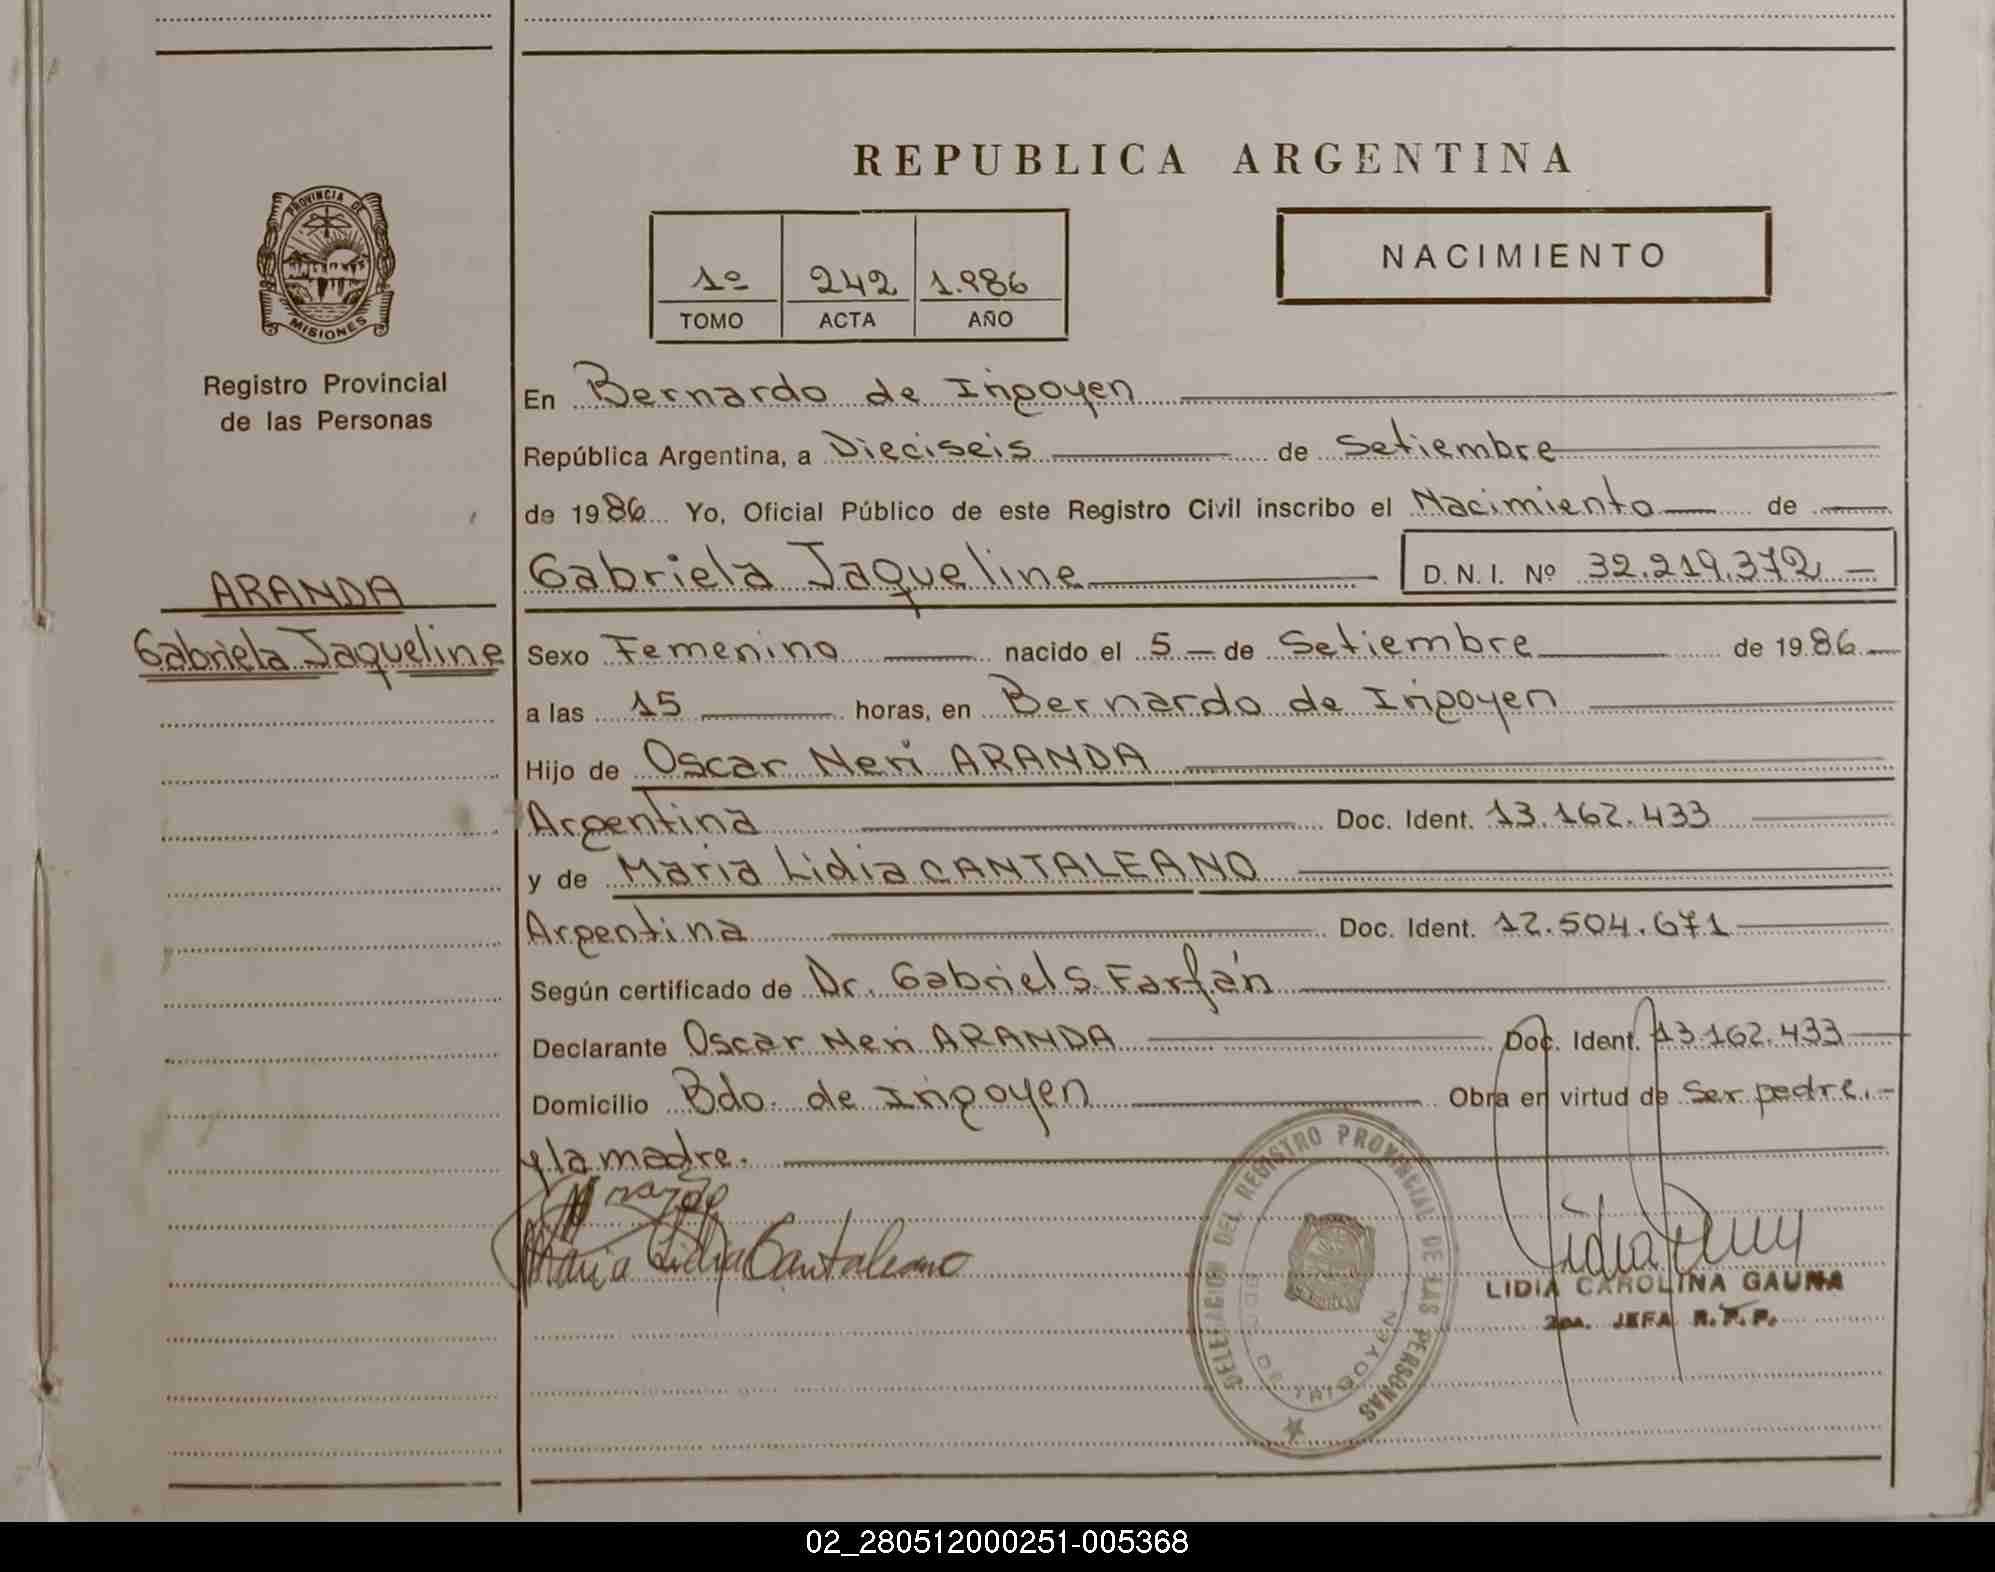 REPUBLICA ARGENTINA
PROVINCIA DE
MISIONES
Registro Provincial
de las Personas
1º 242 1.986
TOMO ACTA AÑO
NACIMIENTO
En Bernardo de Irigoyen
República Argentina, a Dieciseis de Setiembre
de 1986 Yo, Oficial Público de este Registro Civil inscribo el Nacimiento de
Gabriela Jaqueline D. N. I. Nº 32.219.372
ARANDA
Gabriela Jaqueline
Sexo Femenino nacido el 5 de Setiembre de 1986
a las 15 horas, en Bernardo de Irigoyen
Hijo de Oscar Neri ARANDA
Argentina Doc. Ident. 13.162.433
y de Maria Lidia CANTALEANO
Argentina Doc. Ident. 12.504.671
Según certificado de Dr. Gabriel S. Farfán
Declarante Oscar Neri ARANDA Doc. Ident. 13.162.433
Domicilio Bdo. de Irigoyen Obra en virtud de Ser padre.
y la madre.
Maria Lidia Cantaleano
DELEGACION DEL REGISTRO PROVINCIAL DE LAS PERSONAS
BDO. DE IRIGOYEN
LIDIA CAROLINA GAUNA
2da. JEFA R.P.P.
02_280512000251-005368